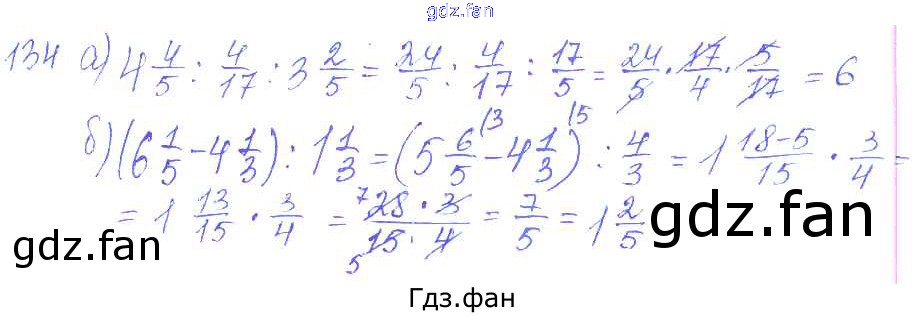 gdz.fan
134 а) 4 4/5 : 4/17 : 3 2/5 = 24/5 : 4/17 : 17/5 = 24/5 · 17/4 · 5/17 = 6
б) (6 1/5 − 4 1/3) : 1 1/3 = (5 6/5 (3 − 4 1/3 (5) : 4/3 = 1 18−5/15 · 3/4 =
= 1 13/15 · 3/4 = 7 28 · 3/15 · 4 5 = 7/5 = 1 2/5
gdz.fan gdz.fan
Гдз.фан